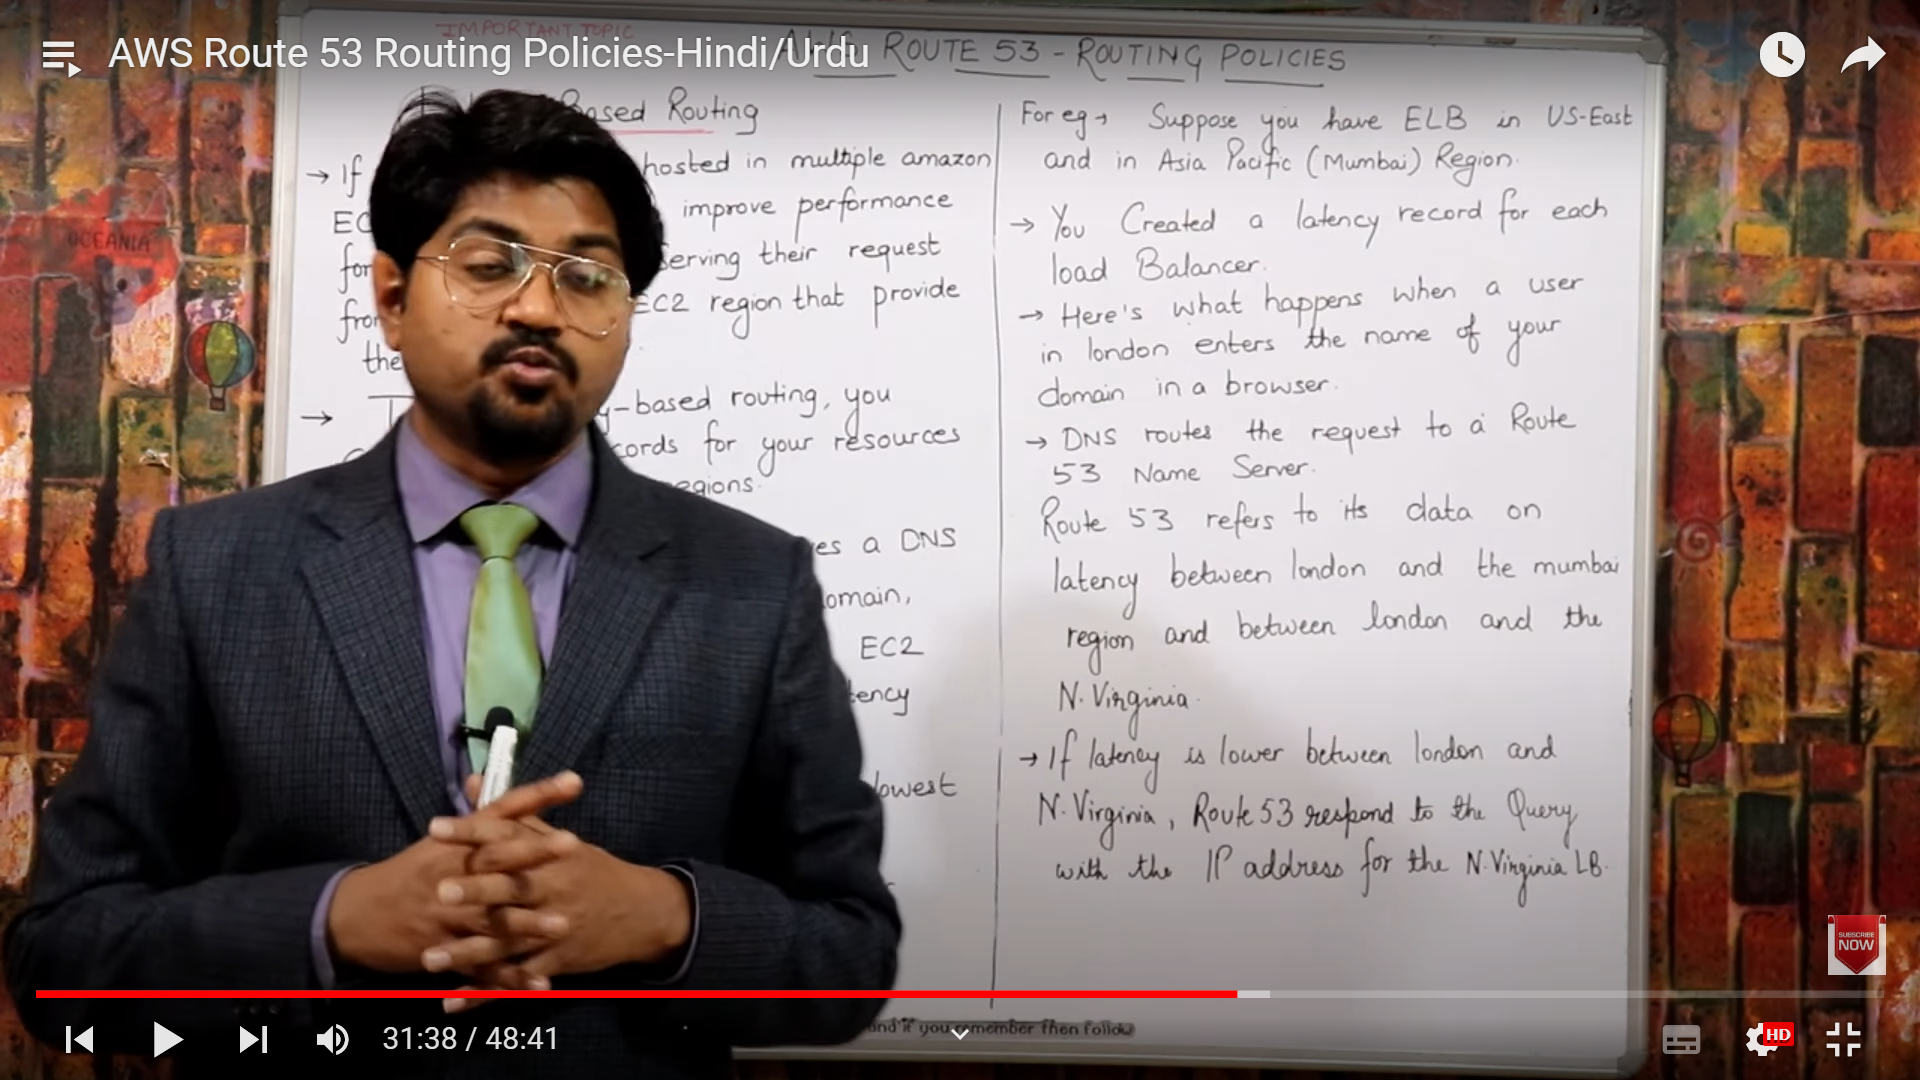 AWS Route 53 Routing Policies-Hindi/Urdu
IMPORTANT TOPIC
ROUTE 53 - ROUTING POLICIES
Based Routing
→ If hosted in multiple amazon
improve performance
for serving their request
from EC2 region that provide
the
→ -based routing, you
for your resources
regions.
a DNS
domain,
EC2
lowest
For eg → Suppose you have ELB in US-East
and in Asia Pacific (Mumbai) Region.
→ You Created a latency record for each
load Balancer.
→ Here's what happens when a user
in london enters the name of your
domain in a browser.
→ DNS routes the request to a Route
53 Name Server.
Route 53 refers to its data on
latency between london and the mumbai
region and between london and the
N. Virginia.
→ If latency is lower between london and
N. Virginia, Route 53 respond to the Query
with the IP address for the N. Virginia LB.
OCEANIA
SUBSCRIBE
NOW
and if you remember then follow
31:38 / 48:41
HD